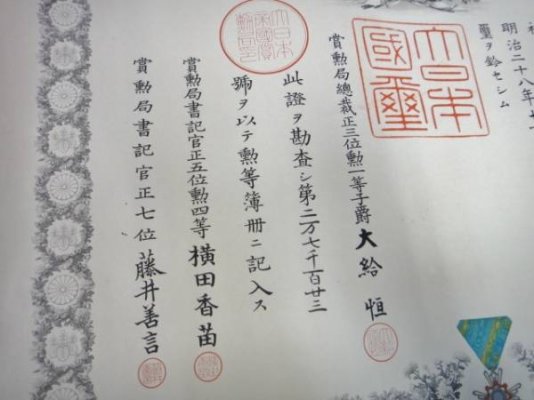 明治二十八年十
璽ヲ鈐セシム
大日本國璽
賞勲局總裁正三位勲一等子爵大給恒
此證ヲ勘査シ第二万七千百廿三
號ヲ以テ勲等簿册ニ記入ス
賞勲局書記官正五位勲四等橫田香苗
賞勲局書記官正七位藤井善言